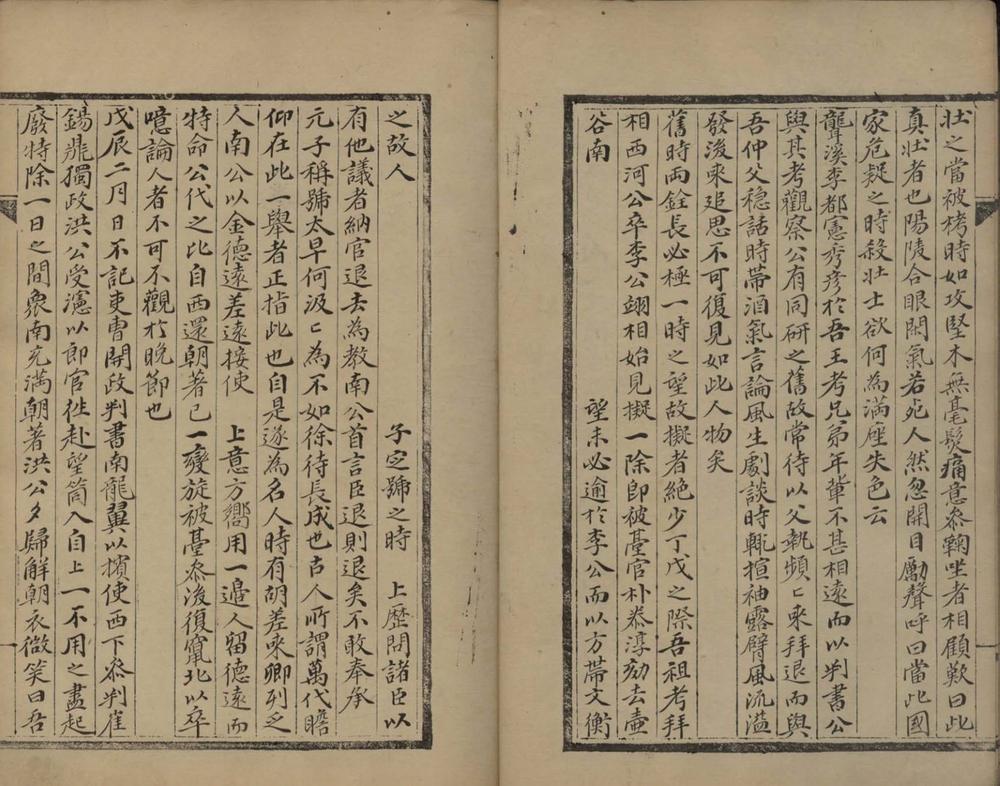 壯之當被栲時如攻堅木無毫髮痛意叅鞫坐者相顧歎曰此
真壯者也陽陵合眼閑氣若死人然忽開目勵聲呼曰當此國
家危疑之時殺壯士欲何為滿座失色云
聾溪李都憲秀彦於吾王考兄弟年輩不甚相遠而以判書公
與其考觀察公有同研之舊故常待以父執頻〻來拜退而與
吾仲父穩話時帶酒氣言論風生劇談時輒揎袖露臂風流溢
發後來追思不可復見如此人物矣
舊時兩銓長必極一時之望故擬者絶少丁戊之際吾祖考拜
相西河公卒李公翊相始見擬一除卽被臺官朴泰淳劾去壺
谷南 望未必逾於李公而以方帶文衡
之故人 子定號之時 上歷問諸臣以
有他議者納官退去為教南公首言臣退則退矣不敢奉承
元子稱號太早何汲〻為不如徐待長成也古人所謂萬代瞻
仰在此一舉者正指此也自是遂為名人時有胡差來卿列乏
人南公以金德遠差遠接使 上意方嚮用一邊人留德遠而
特命公代之比自西還朝著已一變旋被臺叅後復竄北以卒
噫論人者不可不觀於晚節也
戊辰二月日不記吏曹開政判書南龍翼以擯使西下叅判崔
錫鼎獨政洪公受瀗以郎官徃赴望筒入自上一不用之盡起
廢特除一日之間衆南充滿朝著洪公夕歸解朝衣微笑曰吾